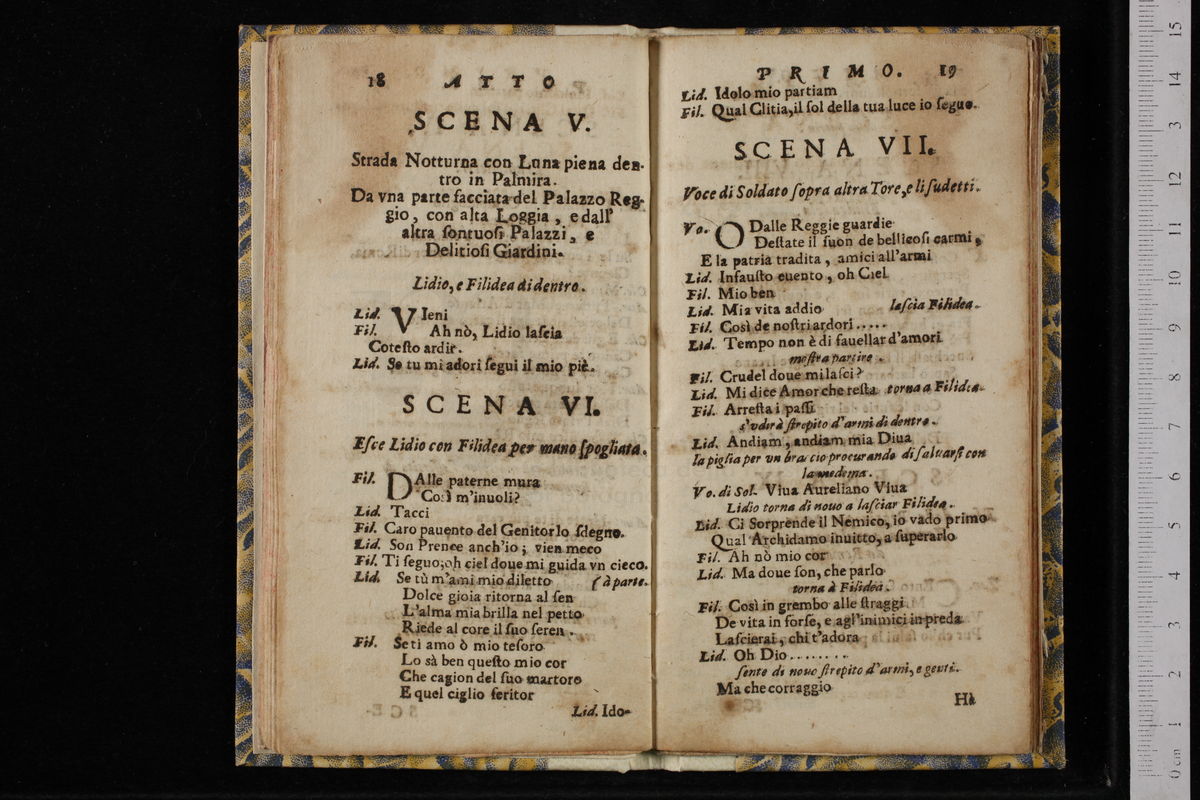 18 ATTO
SCENA V.
Strada Notturna con Luna piena den-
tro in Palmira.
Da vna parte facciata del Palazzo Reg-
gio, con alta Loggia, e dall'
altra sontuosi Palazzi, e
Delitiosi Giardini.
Lidio, e Filidea di dentro.
Lid. VIeni
Fil. Ah nò, Lidio lascia
Cotesto ardir.
Lid. Se tu mi adori segui il mio piè.
SCENA VI.
Esce Lidio con Filidea per mano spogliata.
Fil. DAlle paterne mura
Così m'inuoli?
Lid. Tacci
Fil. Caro pauento del Genitor lo sdegno.
Lid. Son Prence anch'io; vien meco
Fil. Ti seguo; oh ciel doue mi guida vn cieco.
Lid. Se tù m'ami mio diletto (à parte.
Dolce gioia ritorna al sen
L'alma mia brilla nel petto
Riede al core il suo seren.
Fil. Se ti amo ò mio tesoro
Lo sà ben questo mio cor
Che cagion del suo martoro
E quel ciglio feritor
Lid. Ido-
PRIMO. 19
Lid. Idolo mio partiam
Fil. Qual Clitia, il sol della tua luce io seguo.
SCENA VII.
Voce di Soldato sopra altra Tore, e li sudetti.
Vo. O Dalle Reggie guardie
Destate il suon de bellicosi carmi,
E la patria tradita, amici all'armi
Lid. Infausto euento, oh Ciel
Fil. Mio ben
Lid. Mia vita addio lascia Filidea.
Fil. Così de nostri ardori.....
Lid. Tempo non è di fauellar d'amori
mostra partire.
Fil. Crudel doue mi lasci?
Lid. Mi dice Amor che resta torna a Filidea.
Fil. Arresta i passi
s'vdirà strepito d'armi di dentro.
Lid. Andiam, andiam mia Diua
la piglia per vn braccio procurando di saluarsi con
la medema.
Vo. di Sol. Viua Aureliano Viua
Lidio torna di nouo a lasciar Filidea.
Lid. Ci Sorprende il Nemico, io vado primo
Qual Archidamo inuitto, a superarlo
Fil. Ah nò mio cor
Lid. Ma doue son, che parlo
torna à Filidea.
Fil. Così in grembo alle straggi
De vita in forse, e agl'inimici in preda
Lascierai, chi t'adora
Lid. Oh Dio........
sente di nouo strepito d'armi, e genti.
Ma che corraggio
Hà